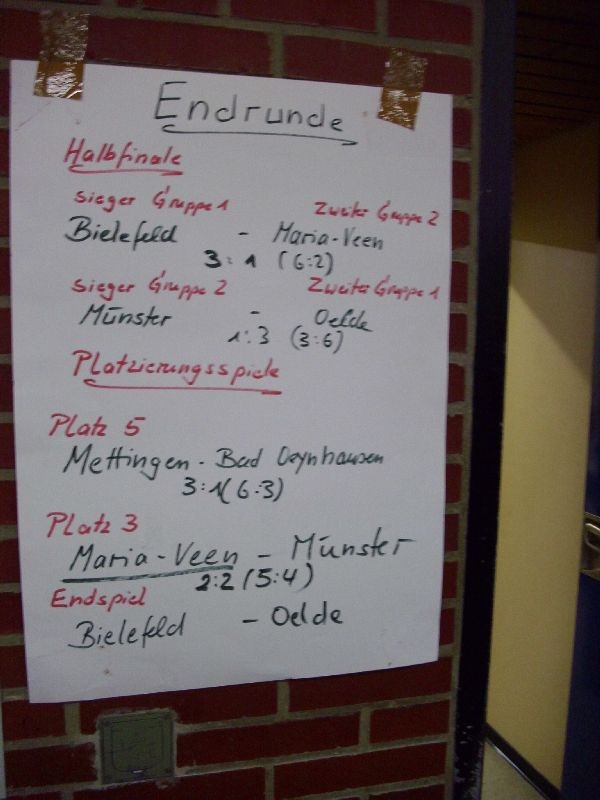 Endrunde
Halbfinale
Sieger Gruppe 1 Zweiter Gruppe 2
Bielefeld - Maria-Veen
3:1 (6:2)
Sieger Gruppe 2 Zweiter Gruppe 1
Münster - Oelde
1:3 (3:6)
Platzierungsspiele
Platz 5
Mettingen - Bad Oeynhausen
3:1 (6:3)
Platz 3
Maria-Veen - Münster
2:2 (5:4)
Endspiel
Bielefeld - Oelde